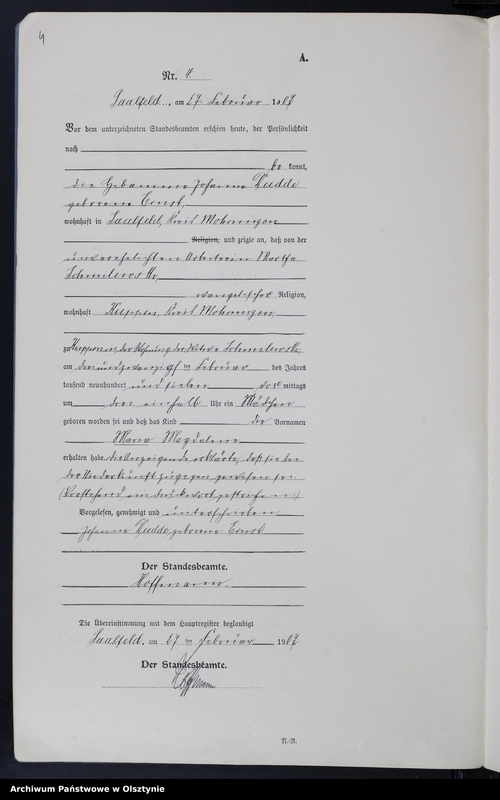 4
A.
Nr. 4.
Saalfeld, am 27 Februar 1907
Vor dem unterzeichneten Standesbeamten erschien heute, der Persönlichkeit
nach
be kannt,
die Hebamme Johanna Kudde
geborene Ernst,
wohnhaft in Saalfeld, Kreis Mohrungen
Religion, und zeigte an, daß von der
unverehelichten Arbeiterin Martha
evangelischer Religion,
wohnhaft Kuppen, Kreis Mohrungen,
zu Kuppen in der Wohnung der Witwe
am dreiundzwanzigsten Februar des Jahres
tausend neunhundert und sieben vor mittags
um drei einhalb Uhr ein Mädchen
geboren worden sei und daß das Kind die Vornamen
Maria Magdalena
erhalten habe. Die Anzeigende erklärte, daß sie bei
der Niederkunft zugegen gewesen sei.
(Vorstehend ein Druckwort gestrichen.)
Vorgelesen, genehmigt und unterschrieben
Johanna Kudde geborene Ernst
Der Standesbeamte.
Hoffmann.
Die Übereinstimmung mit dem Hauptregister beglaubigt
Saalfeld, am 27 ten Februar 1907
Der Standesbeamte.
Hoffmann
Archiwum Państwowe w Olsztynie